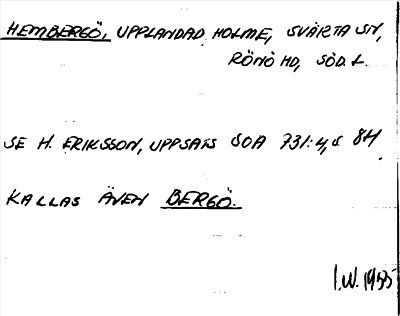 HEMBERGÖ, UPPLANDAD HOLME, SVÄRTA SN,
RÖNÖ HD, SÖD. L.
SE H. ERIKSSON, UPPSATS SOA 731:4, S 84.
KALLAS ÄVEN BERGÖ.
I.W. 1955